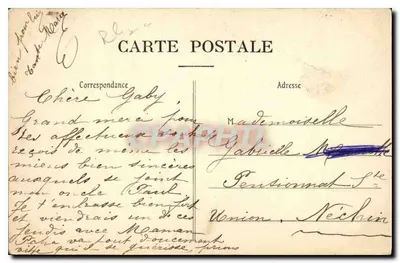 bien pour lui
CARTE POSTALE
Correspondance
Adresse
Chère Gaby,
Grand merci pour
tes affectueux
reçois de même les
miens bien sincères
auxquels se joint
mon oncle Paul
Je t'embrasse bien fort
et viendrais un de ces
jeudis avec Maman
va tout doucement
vite qu'il se guérisse
Mademoiselle
Gabrielle
Pensionnat Ste
Union, Néchin